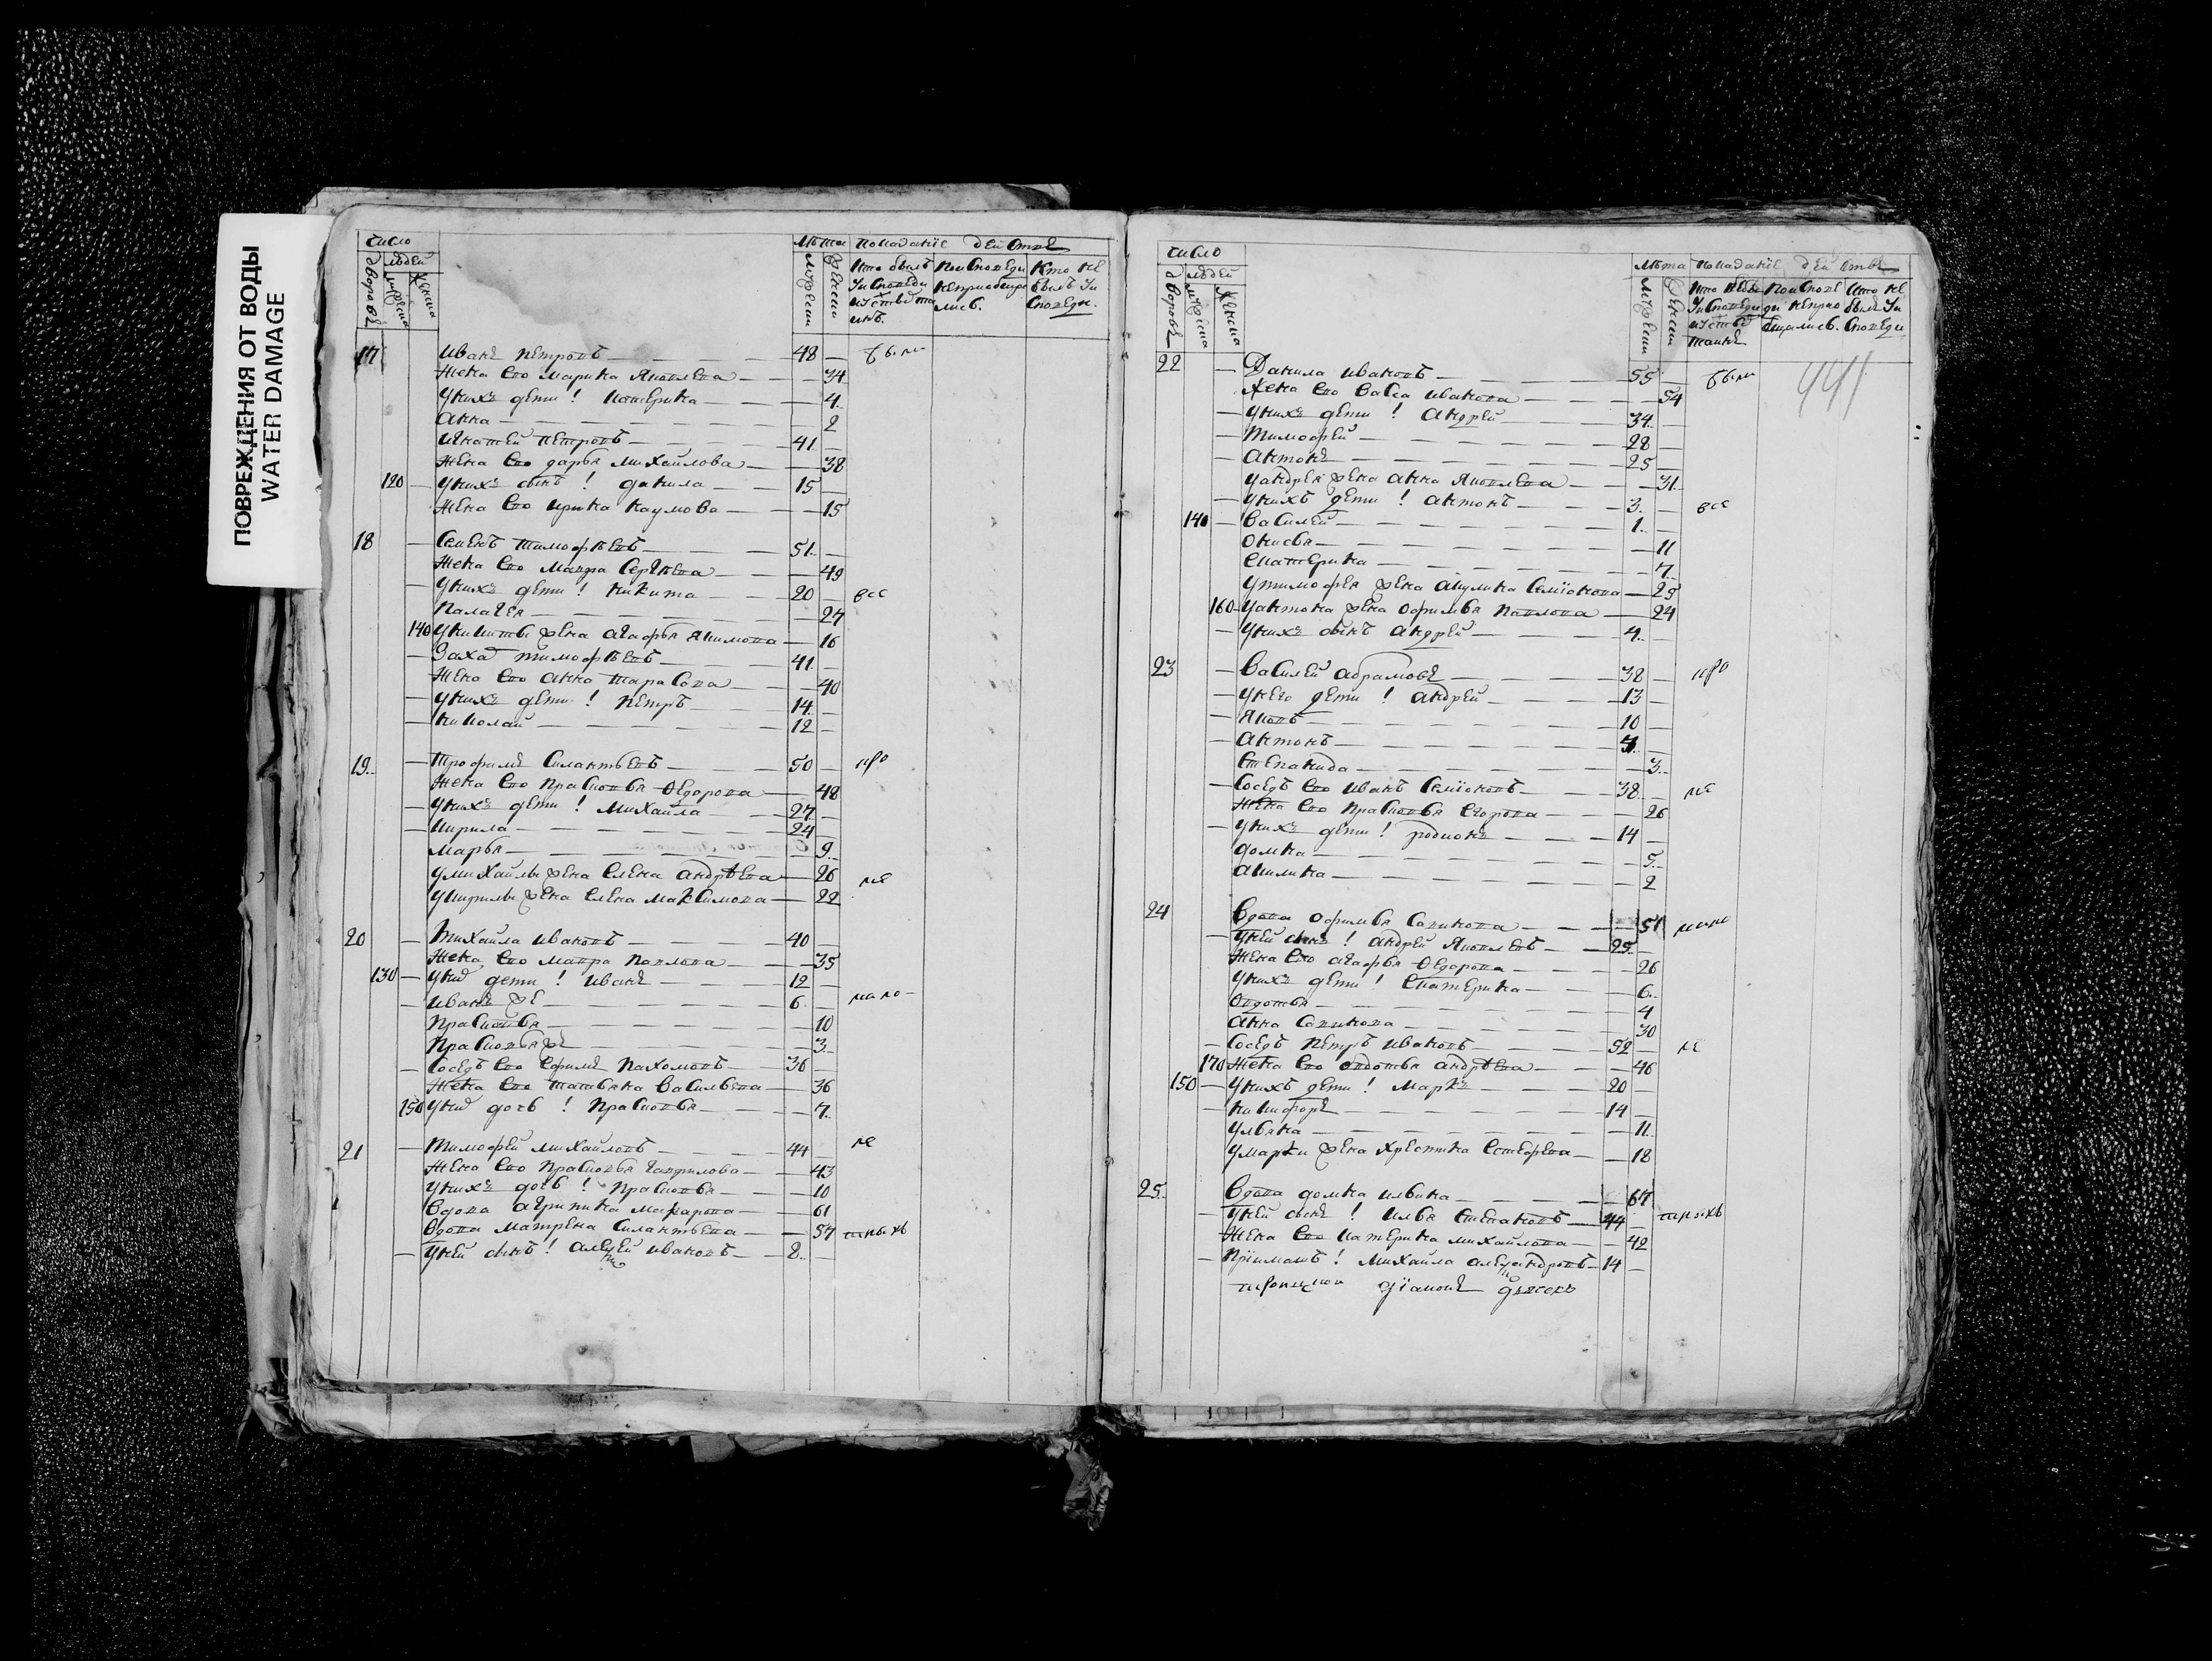 ПОВРЕЖДЕНИЯ ОТ ВОДЫ
WATER DAMAGE
число
дворовъ
людей
мужеска
женска
лѣта
мужески
женски
показанїе действ
кто былъ у исповѣди и у с͠тыхъ таинъ.
при исповеди неприобщились.
кто не былъ у исповеди.
17 Иванъ петровъ 48 были
жена его марина яковлева 34
у нихъ дети! катерина 4
анна 2
игнатей петровъ 41
жена его дарья михайлова 38
120 у нихъ сынъ! данила 15
жена его ирина наумова 15
18 Семенъ тимофѣевъ 51
жена его мавра сергѣева 49
у нихъ дети! никита 20 все
палагея 27
140 у никиты жена агафья якимова 16
заха тимофѣевъ 41
жена его анна тарасова 40
у нихъ дети! петръ 14
николай 12
19 трофимъ силантьевъ 50
жена его прасковья ѳедорова 48
у нихъ дети! михайла 27
кирила 24
марья 9
у михайлы жена елена андрѣева 26
у кирилы жена елена максимова 22
20 михайла ивановъ 40
жена его мавра павлова 35
130 у них дети! иванъ 12
иванъ же 6
прасковья 10
прасковья же 3
соседъ его ефимъ пахомовъ 36
жена его татьяна васильева 36
150 у них дочь! прасковья 7
21 тимофей михайловъ 44
жена его прасковья гаврилова 43
у нихъ дочь! прасковья 10
вдова агрипина макарова 61
вдова матрена силантьева 57
у ней сынъ! алексей ивановъ 8
число
дворовъ
людей
мужеска
женска
лѣта
мужески
женски
показанїе действ
кто былъ у исповеди и у с͠тыхъ таинъ
при исповеди неприобщались.
кто не былъ у исповеди
441
22 Данила ивановъ 55 были
жена его васса иванова 54
у нихъ дети! андрей 34
тимофей 28
антонъ 25
у андрея жена анна яковлева 31
у нихъ дети! антонъ 3 все
140 василей 1
окисья 11
екатерина 7
у тимофея жена акулина семїонова 25
160 у антона жена офимья павлова 24
у нихъ сынъ андрей 4
23 василей абрамовъ 38
у него дети! андрей 13
яковъ 10
антонъ
степанида 3
соседъ его иванъ семїоновъ 38
жена его прасковья егорова 26
у нихъ дети! родионъ 14
домна 5
акилина 2
24 вдова офимья савинова 51
у ней сынъ! андрей яковлевъ 25
жена его агафья ѳедорова 26
у нихъ дети! екатерина 6
овдотья 4
анна савинова 30
соседъ петръ ивановъ 52
170 жена его овдотья андрѣева 46
150 у нихъ дети! марк 20
никифоръ 14
ульяна 11
у марки жена христина естефева 18
25 вдова домна ильина 67
у ней сынъ! илья степановъ 44
жена его катерина михайлова 42
прїимашъ! михаила александровъ 14
дїаконъ